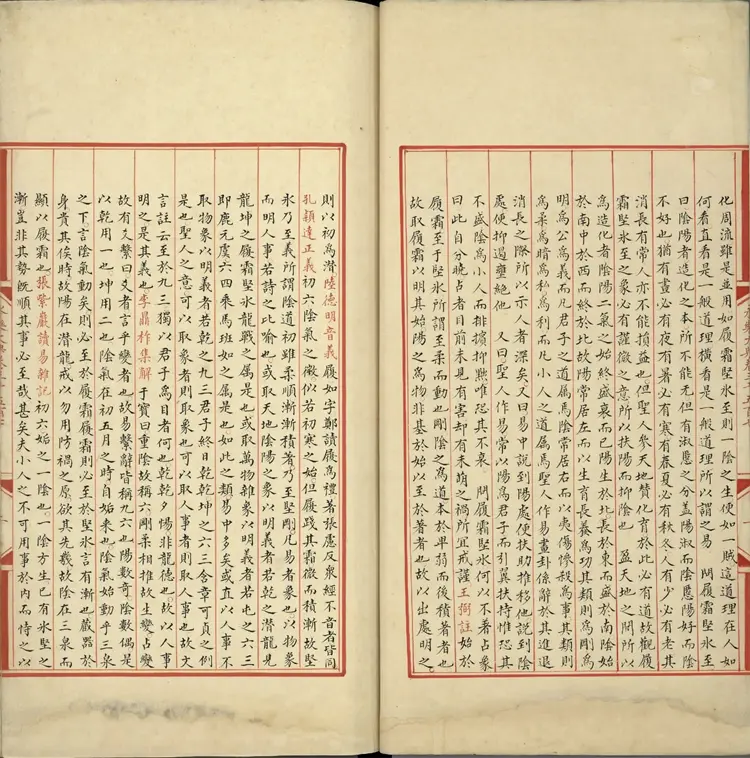 化周流雖是並用如履霜堅氷至則一陰之生便如一賊這道理在人如
何看直看是一般道理橫看是一般道理所以謂之易 問履霜堅氷至
曰陰陽者造化之本所不能无但有淑慝之分盖陽淑而陰慝陽好而陰
不好也猶有晝必有夜有暑必有寒有春夏必有秋冬人有少必有老其
消長有常人亦不能損益也但聖人參天地賛化育於此必有道故觀履
霜堅氷至之象必有謹微之意所以扶陽而抑陰也 盈天地之間所以
為造化者陰陽二氣之始終盛衰而已陽生於北長於東而盛於南陰始
於南中於西而終於北故陽常居左而以生育長養為功其類則為剛為
明為公為義而凡君子之道屬焉陰常居右而以夷傷慘殺為事其類則
為柔為暗為私為利而凡小人之道屬焉聖人作易畫卦係辭於其進退
消長之際所以示人者深矣又曰易中説到陽處便扶助推移他説到陰
處便抑遏壅絶他 又曰聖人作易常以陽為君子而引翼扶持惟恐其
不盛陰為小人而排擯抑黜唯恐其不衰 問履霜堅氷何以不著占象
曰此自分曉占者目前未見有害却有未萌之禍所宜戒謹王弼註始於
履霜至于堅氷所謂至柔而動也剛陰之為道本於卑弱而後積著者也
故取履霜以明其始陽之為物非基於始以至於著者也故以出處明之
則以初為潛陸德明音義履如字鄭讀履為禮著張慮反衆經不音者皆同
孔穎達正義初六陰氣之微似若初寒之始但履踐其霜微而積漸故堅
氷乃至義所謂陰道初雖柔順漸漸積著乃至堅剛凡易者象也以物象
而明人事若詩之比喻也或取天地陰陽之象以明義者若乾之潛龍見
龍坤之履霜堅氷龍戰之屬是也或取萬物雜象以明義者若屯之六三
即鹿无虞六四乘馬班如之屬是也如此之類易中多矣或直以人事不
取物象以明義者若乾之九三君子終日乾乾坤之六三含章可貞之例
是也聖人之意可以取象者則取象也可以取人事者則取人事也故文
言註云至於九三獨以君子為目者何也乾乾夕惕非龍德也故以人事
明之是其義也李鼎祚集解于寳曰重陰故稱六剛柔相推故生變占變
故有爻繫曰爻者言乎變者也故易繫辭皆稱九六也陽數奇陰數偶是
以乾用一也坤用二也陰氣在初五月之時自姤來也陰氣始動乎三泉
之下言陰氣動矣則必至於履霜履霜則必至於堅氷言有漸也臧器於
身貴其俟時故陽在潛龍戒以勿用防禍之原欲其先㡬故陰在三泉而
顯以履霜也張紫巖讀易雜記初六姤之一陰也一陰方生已有氷堅之
漸豈非其勢既順其事必至哉甚矣夫小人之不可用事於內而恃之以